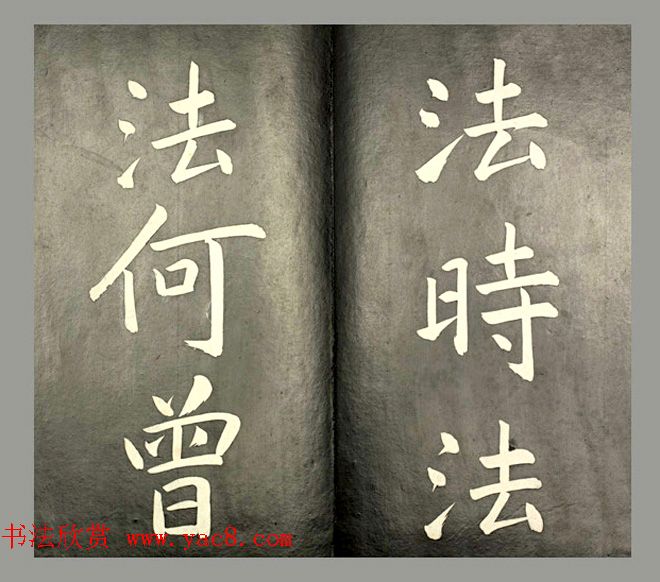 法時法
法何曾
书法欣赏 www.yac8.com